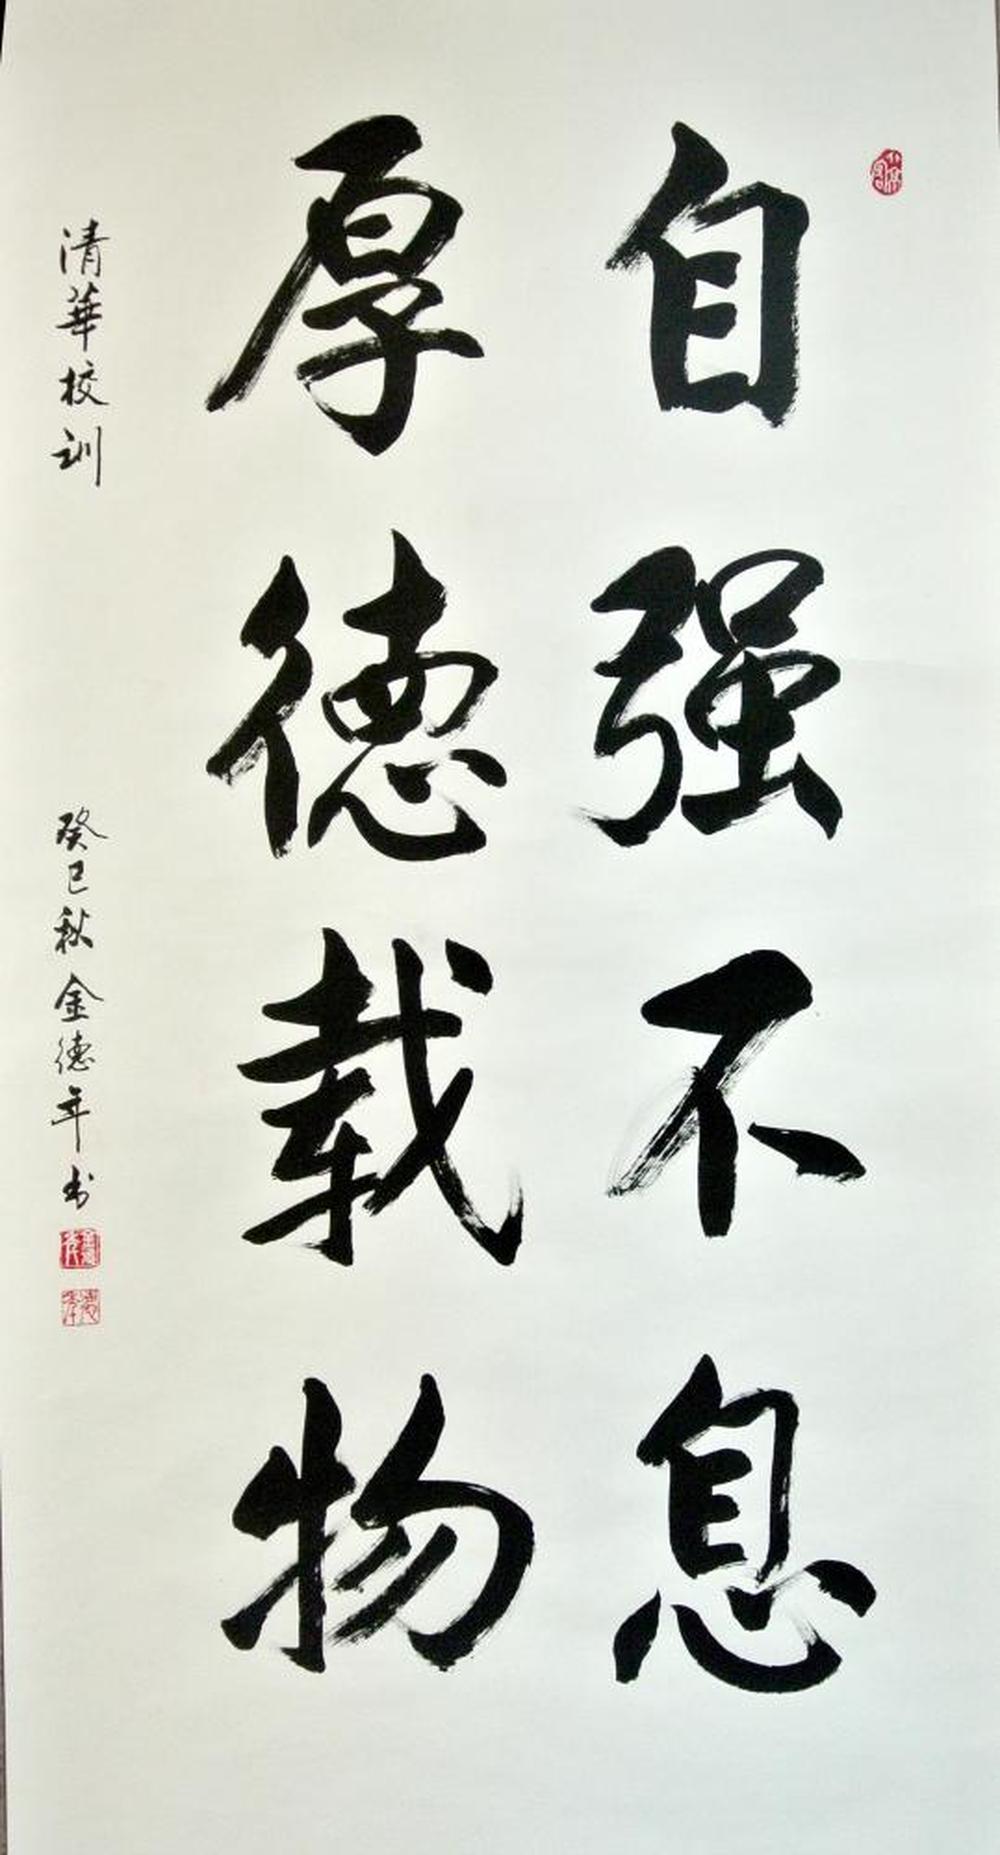 自强不息
厚德载物
清華校训
癸巳秋金德年书